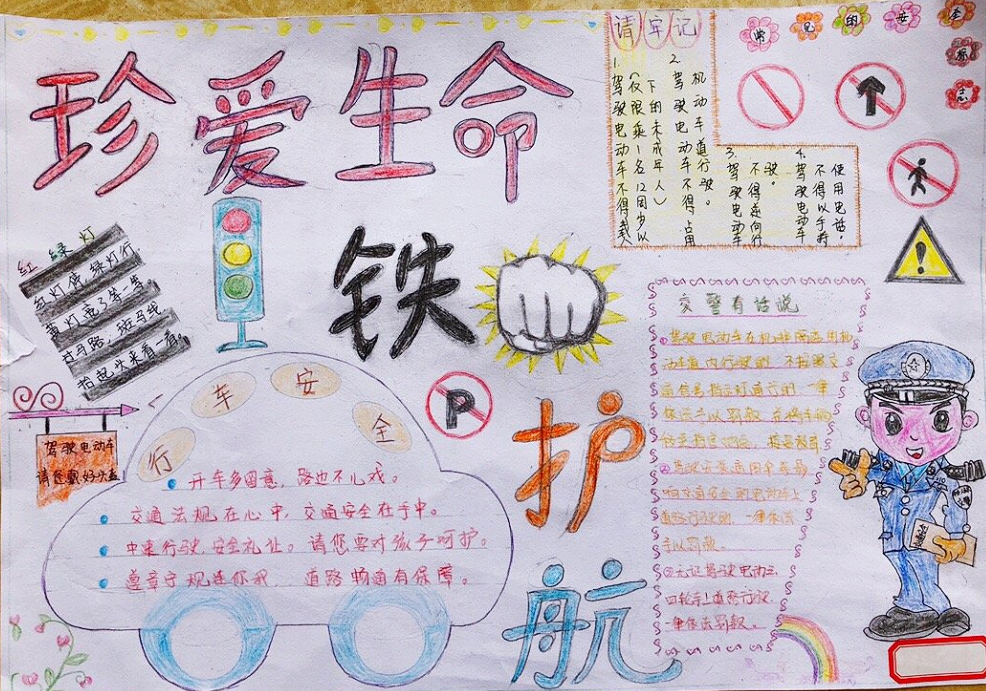 珍爱生命
铁
护
航
请牢记
1.
驾驶电动车不得载人
(仅限乘1名12周岁以
下的未成年人)
2.
驾驶电动车不得占用
机动车道行驶。
3.
驾驶电动车
不得逆向行
驶。
4.
驾驶电动车
不得以手持
使用电话。
常见的安全标志
红绿灯
红灯停,绿灯行
黄灯亮了等一等
过马路,斑马线
抬起头来看一看。
驾驶电动车
请您戴好头盔
行车安全
开车多留意,路边不儿戏。
交通法规在心中,交通安全在手中。
中速行驶,安全礼让。请您要对孩子呵护。
遵章守规连你我 道路畅通有保障。
P
交警有话说
①驾驶电动车在机非隔离用机
动车道内行驶的,不按照交
通信号指示灯通行的,一律
依法予以罚款
②
电动车上
道路行驶的,一律依法
予以罚款。
③无证驾驶电动三
四轮车上道路行驶
一律依法罚款。